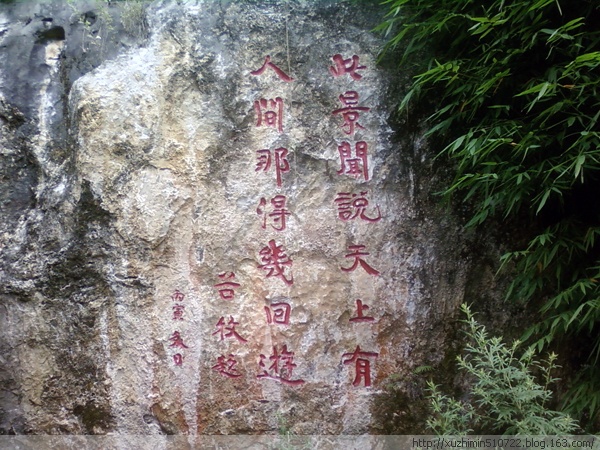 此景聞説天上有
人間那得幾回遊
苦牧
丙寅春日
http://xuzhimin510722.blog.163.com/